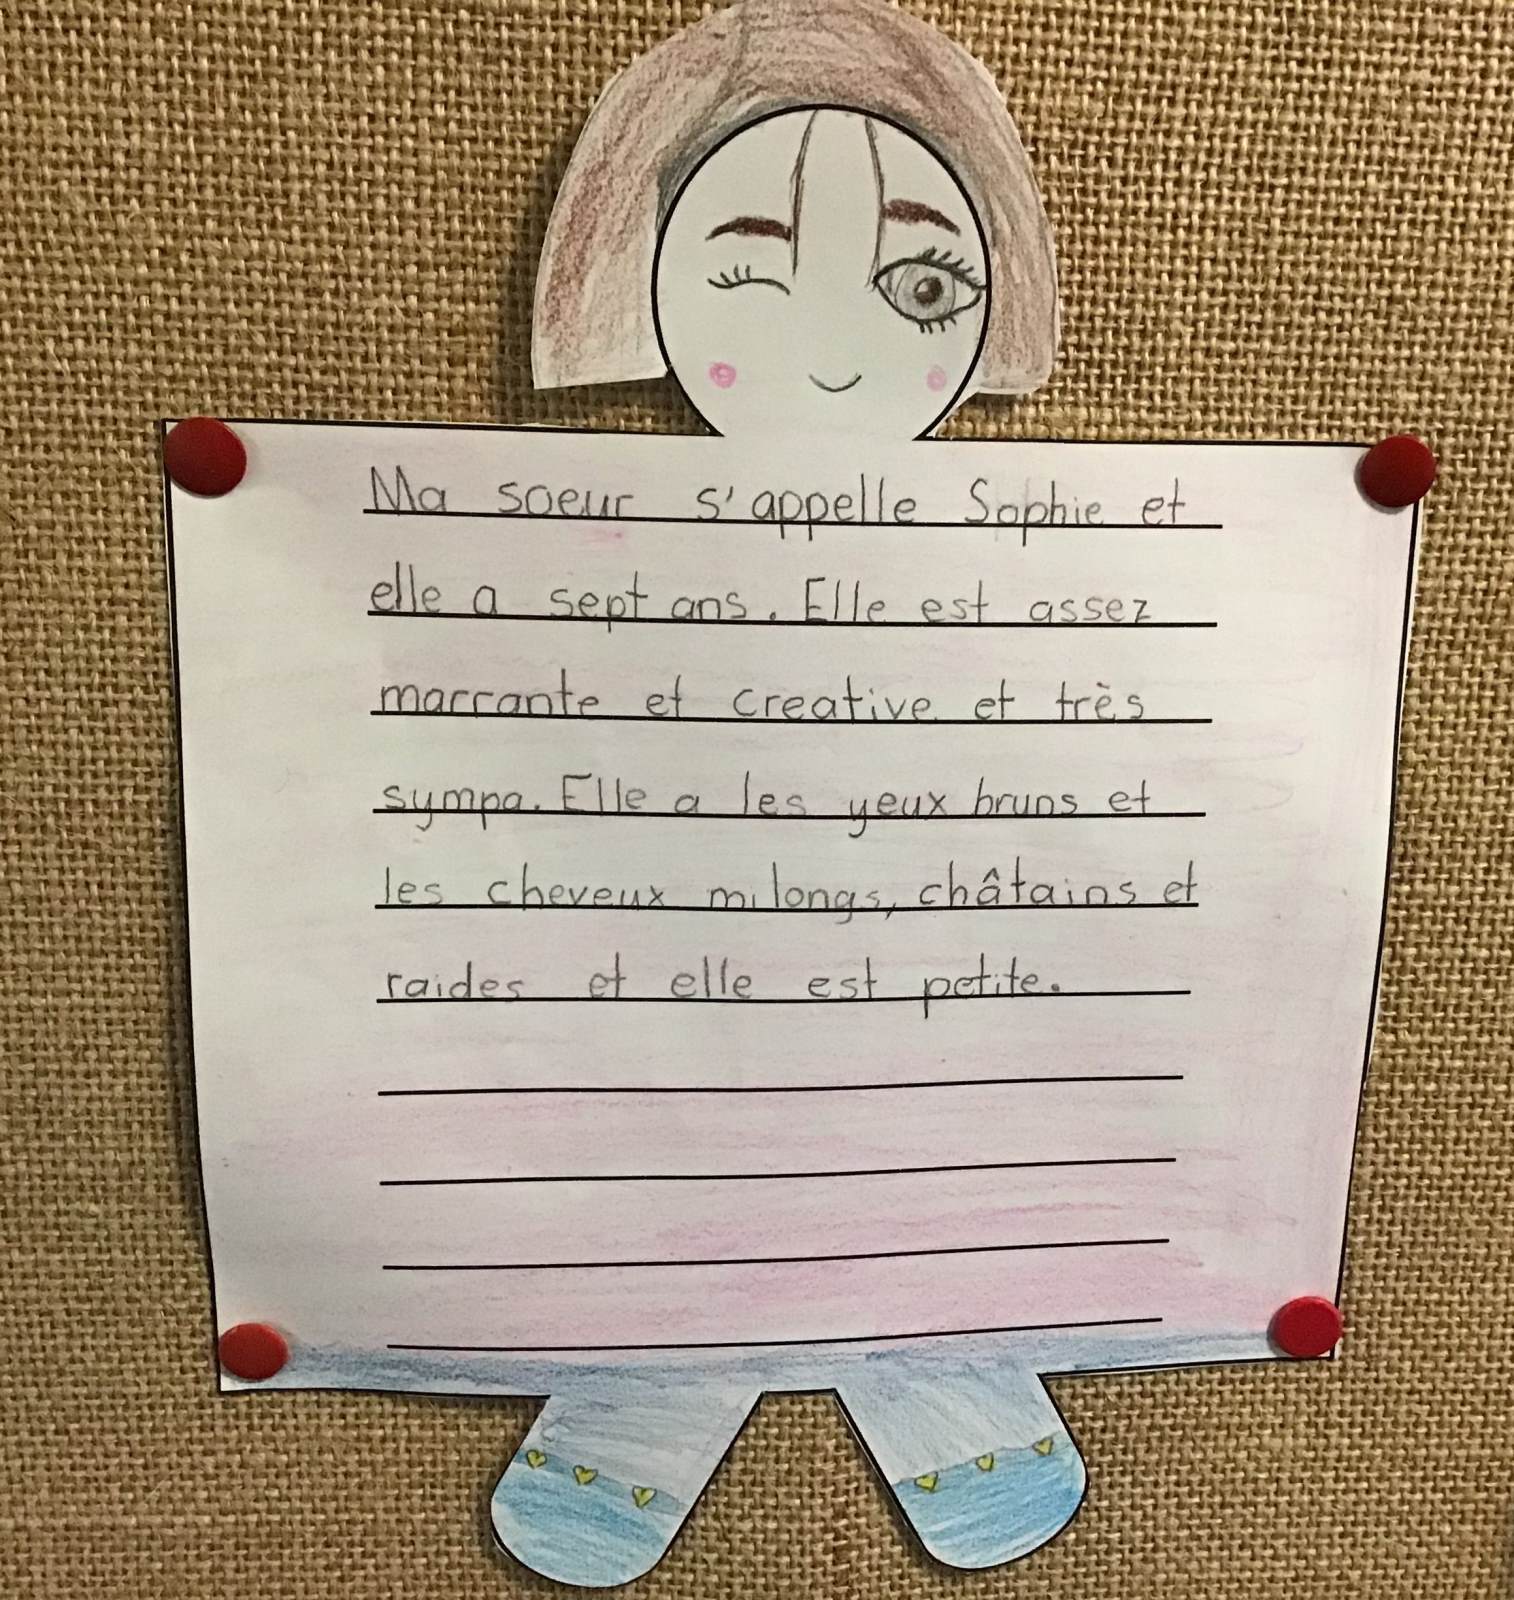 Ma soeur s'appelle Sophie et
elle a sept ans. Elle est assez
marrante et creative et très
sympa. Elle a les yeux bruns et
les cheveux mi longs, châtains et
raides et elle est petite.